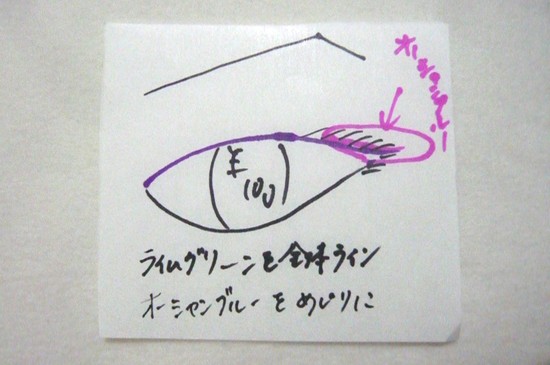 オーシャンブルー
¥
100
ライムグリーンを全体ライン
オーシャンブルーをめじりに